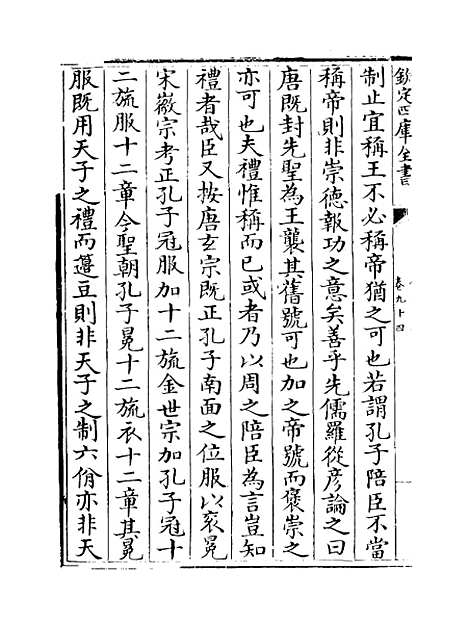 欽定四庫全書
卷九十四
制止宜稱王不必稱帝猶之可也若謂孔子陪臣不當
稱帝則非崇德報功之意矣善乎先儒羅從彦論之曰
唐既封先聖為王襲其舊號可也加之帝號而褒崇之
亦可也夫禮惟稱而已或者乃以周之陪臣為言豈知
禮者哉臣又按唐玄宗既正孔子南面之位服以衮冕
宋徽宗考正孔子冠服加十二旒金世宗加孔子冠十
二旒服十二章今聖朝孔子冕十二旒衣十二章其冕
服既用天子之禮而籩豆則非天子之制六佾亦非天